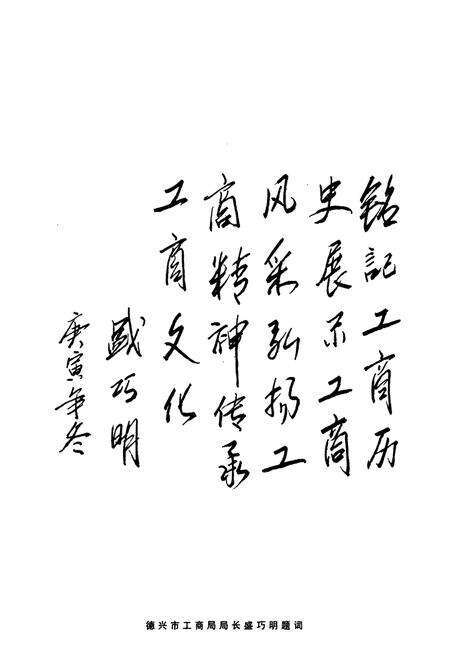 铭記工商历
史展示工商
风采弘扬工
商精神传承
工商文化
盛巧明
庚寅年冬
德兴市工商局局长盛巧明题词